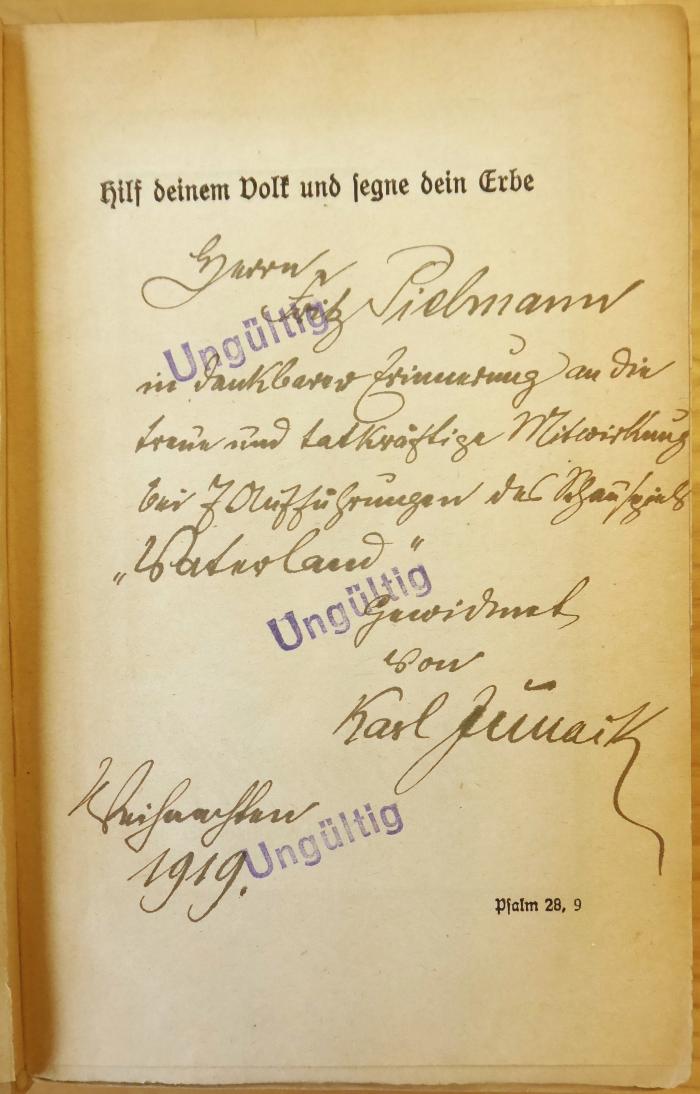 Hilf deinem Volk und segne dein Erbe
Herrn
Fritz Pielmann
Ungültig
in dankbarer Erinnerung an die
treue und tatkräftige Mitwirkung
bei 7 Aufführungen des Schauspiels
„Vaterland“
Ungültig
Gewidmet
von
Karl
Weihnachten
1919.
Ungültig
Psalm 28, 9